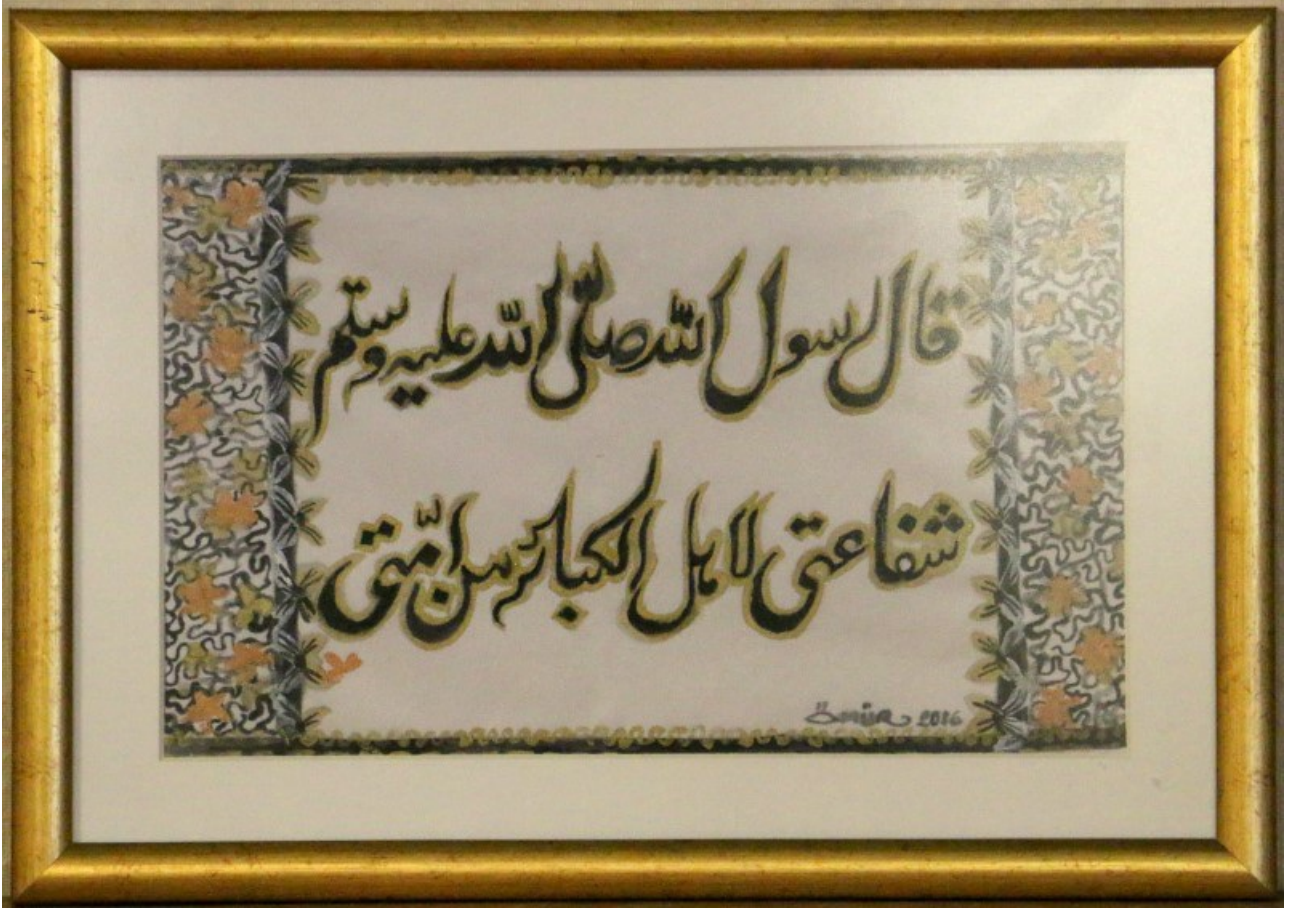 قال رسول الله صلّى الله عليه وسلّم
شفاعتى لاهل الكبائر من امّتى
ömür 2016